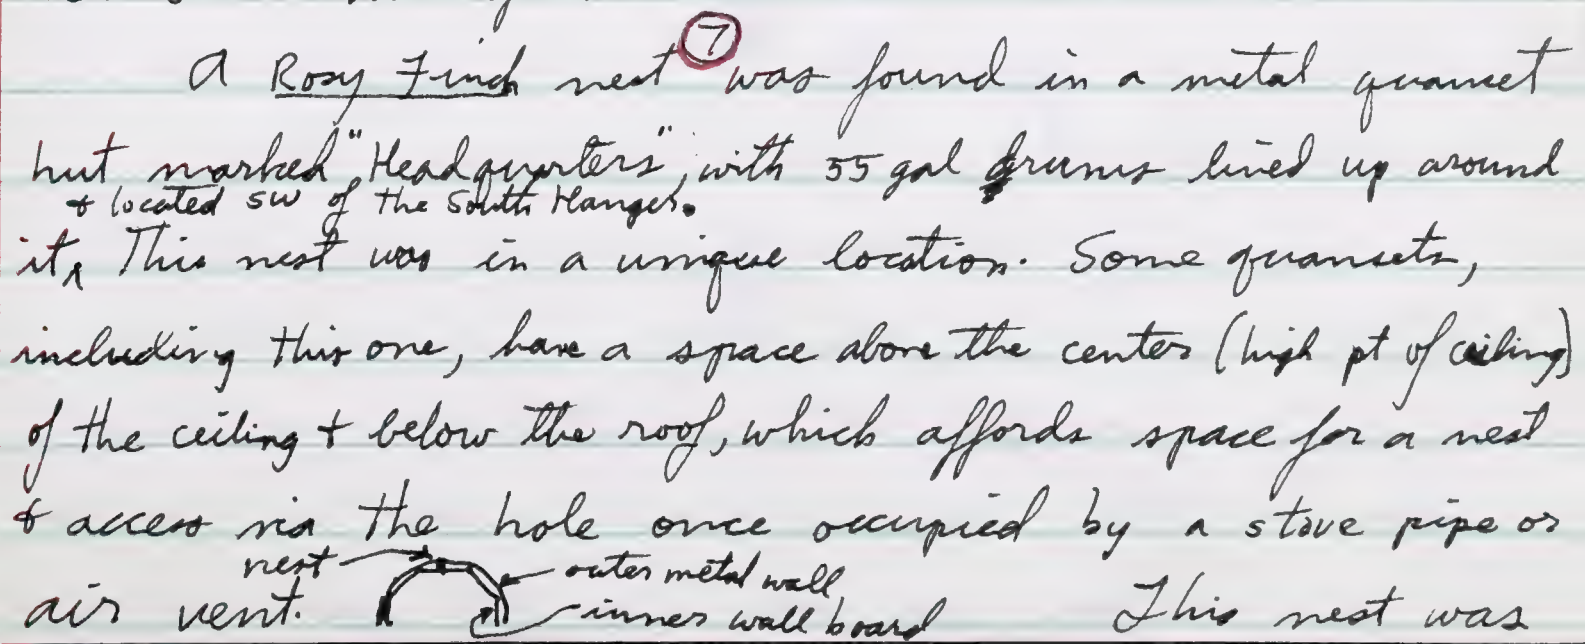 A Rosy Finch nest ⑦ was found in a metal quanset
hut marked "Headquarters", with 55 gal drums lined up around
+ located SW of the South Hanger.
it ^ This nest was in a unique location. Some quansets,
including this one, have a space above the center (high pt of ceiling)
of the ceiling + below the roof, which affords space for a nest
+ access via the hole once occupied by a stove pipe or
nest outer metal wall
air vent. inner wall board This nest was